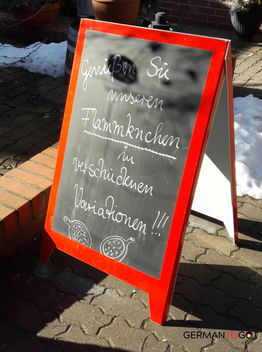 Genießen Sie
unseren
Flammkuchen
in
verschiedenen
Variationen!!!
GERMANTOGO